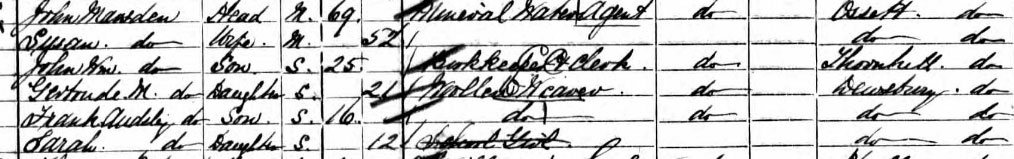 John Mawsden Head M. 69 Mineral Water Agent do Ossett. do
Susan. do Wife. M. 52 do do
John Wm. do Son S. 25 Clerk do Thornhill. do
Gertrude M. do Daughter S. 21 Weaver do Dewsbury. do
Frank do Son. S. 16 do do do do
Sarah. do Daughter S. 12 School Girl do do